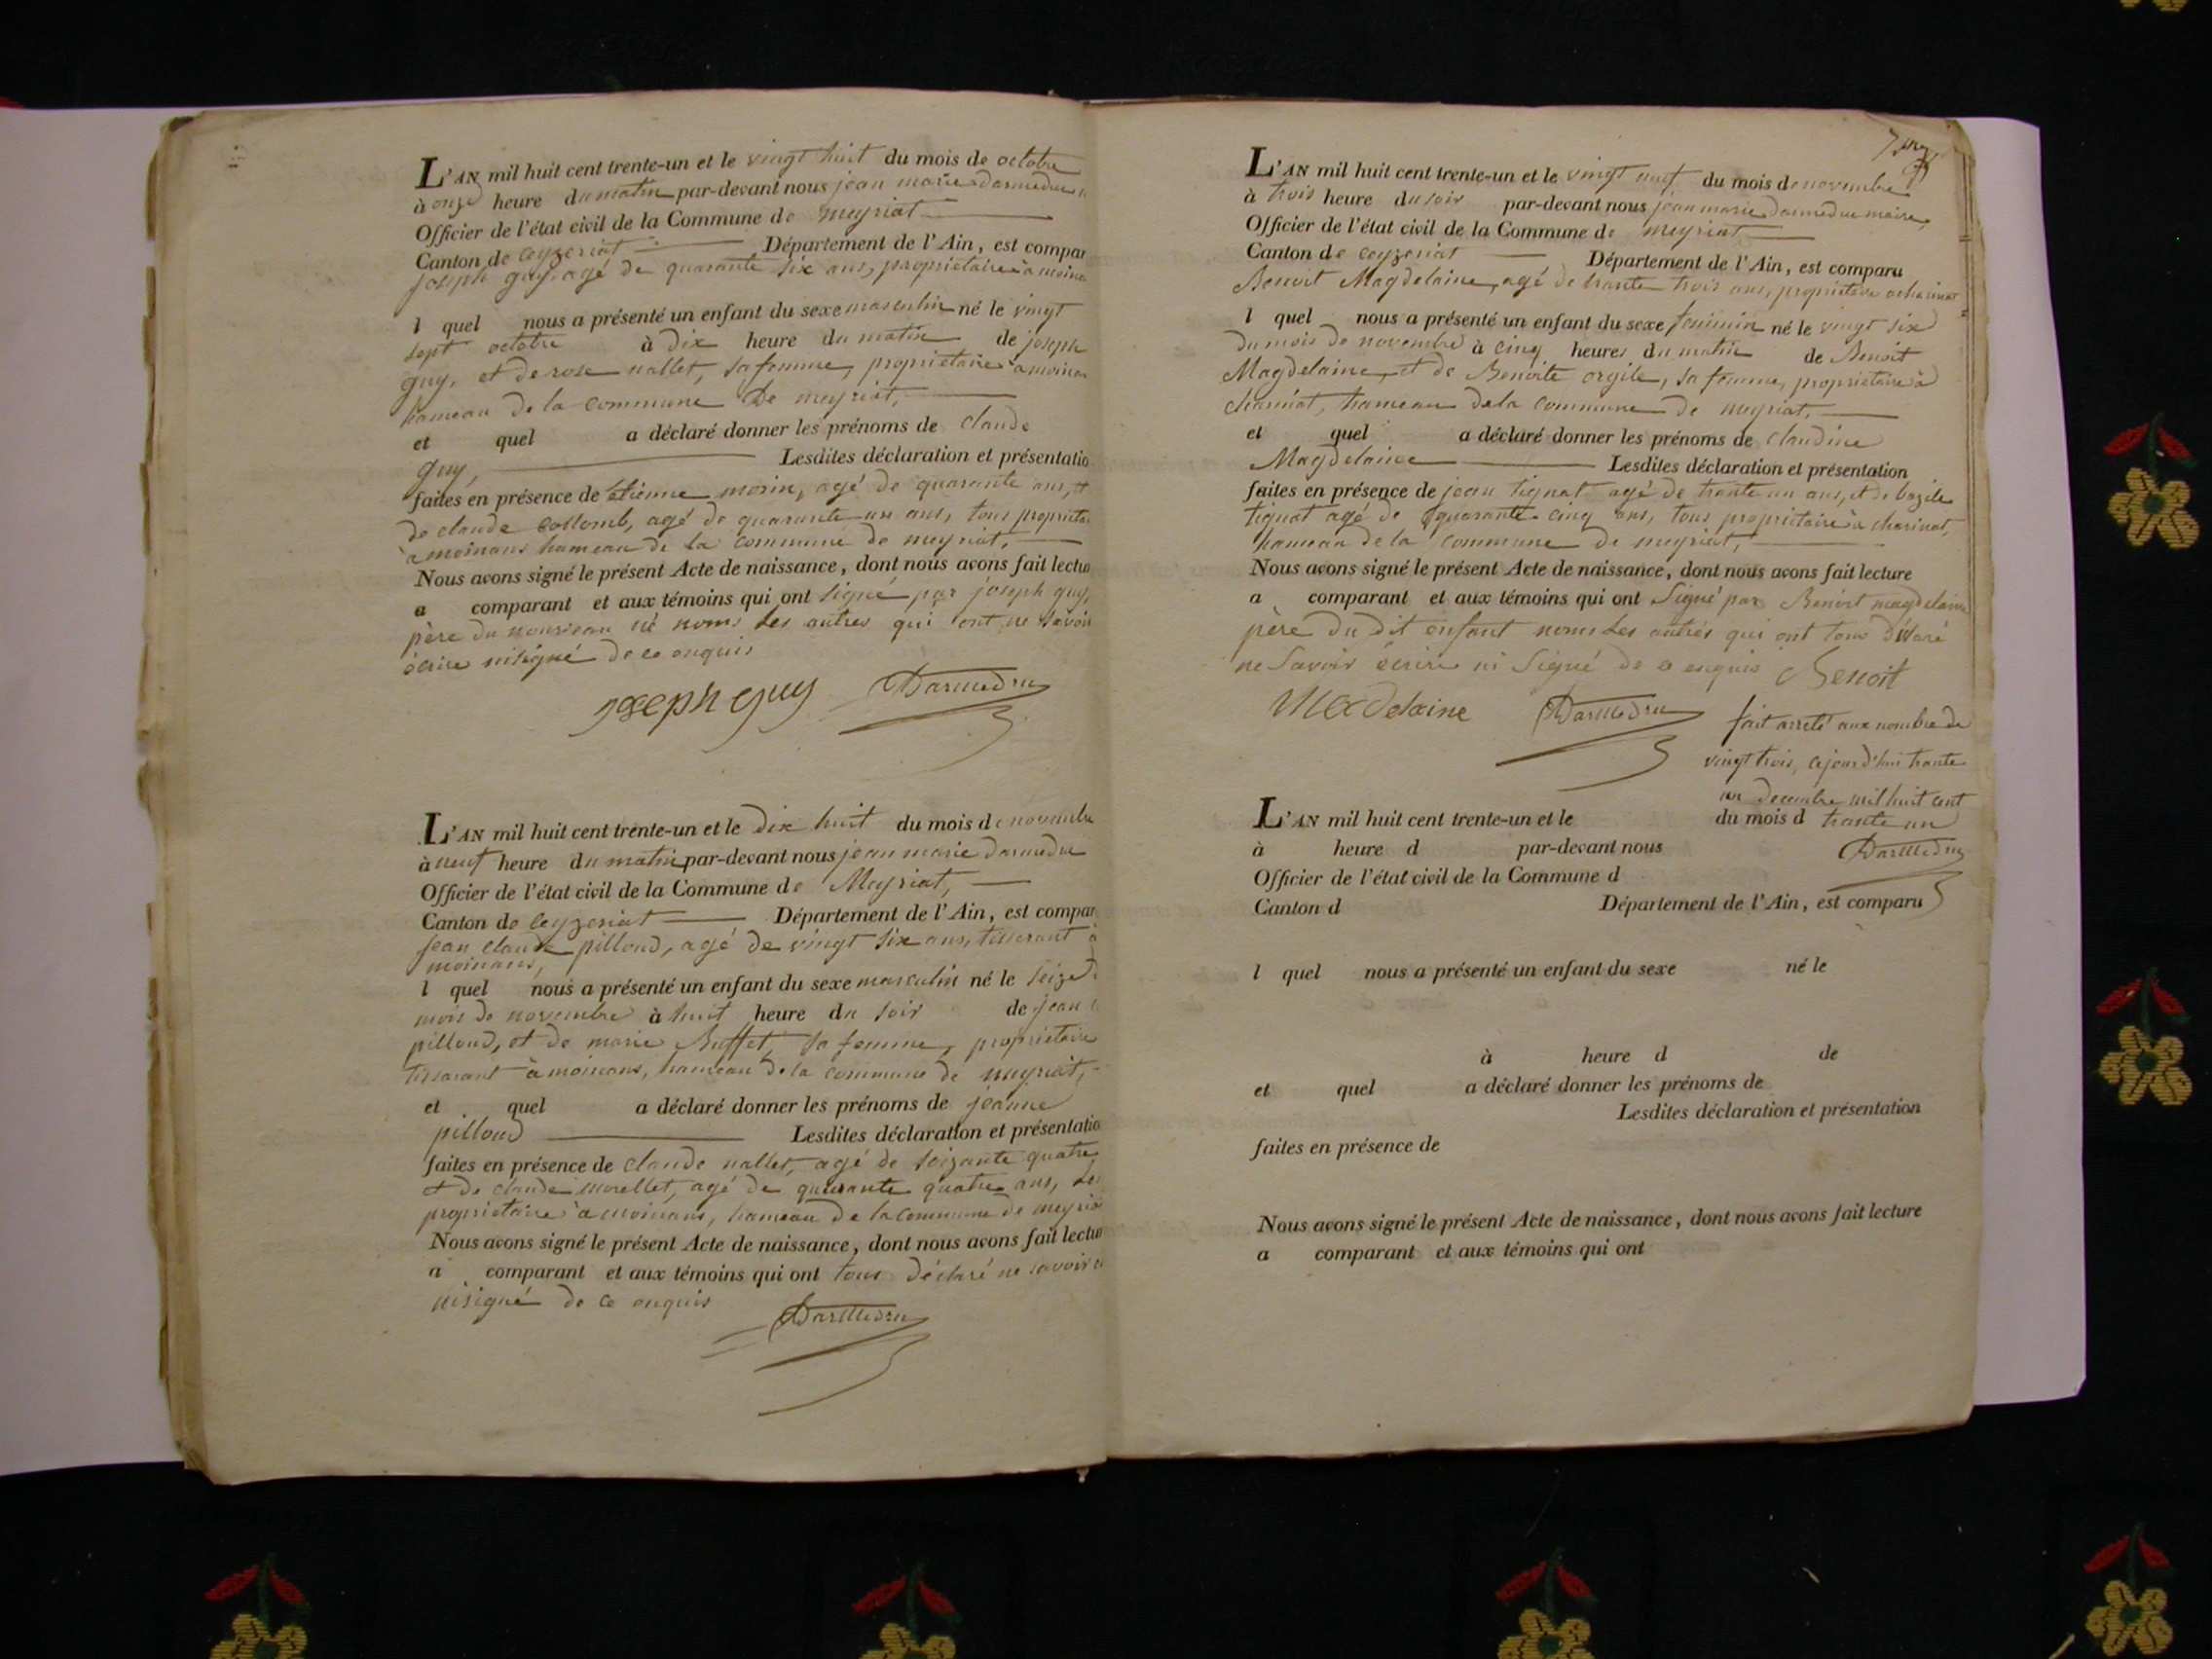 L'AN mil huit cent trente-un et le vingt huit du mois de octobre
à onze heure du matin par-devant nous jean marie darmedru
Officier de l'état civil de la Commune de meyriat
Canton de ceyzeriat Département de l'Ain, est compar
joseph guy, agé de quarante six ans, propriétaire à moina
l quel nous a présenté un enfant du sexe masculin né le vingt
sept octobre à dix heure du matin de joseph
guy, et de rose nallet, sa femme, propriétaire à moinan
hameau de la commune de meyriat,
et quel a déclaré donner les prénoms de claude
guy, Lesdites déclaration et présentatio
faites en présence de étienne morin, agé de quarante ans, et
de claude collomb, agé de quarante un ans, tous propriétai
à moinans hameau de la commune de meyriat,
Nous avons signé le présent Acte de naissance, dont nous avons fait lectur
a comparant et aux témoins qui ont signé par joseph guy,
père du nouveau né noms les autres qui ont ne savoir
écrire ni signé de ce enquis
joseph guy Darmedru
L'AN mil huit cent trente-un et le dix huit du mois de novembre
à neuf heure du matin par-devant nous jean marie darmedru
Officier de l'état civil de la Commune de Meyriat,
Canton de ceyzeriat Département de l'Ain, est compar
jean claude pilloud, agé de vingt six ans, tisserant à
moinans,
l quel nous a présenté un enfant du sexe masculin né le seize d
mois de novembre à huit heure du soir de jean c
pilloud, et de marie Buffet, sa femme, propriétaire
tisserant à moinans, hameau de la commune de meyriat,
et quel a déclaré donner les prénoms de jeanne
pilloud Lesdites déclaration et présentatio
faites en présence de claude nallet, agé de soizante quatre
et de claude morellet, agé de quarante quatre ans,
propriétaire à moinans, hameau de la commune de meyria
Nous avons signé le présent Acte de naissance, dont nous avons fait lectur
a comparant et aux témoins qui ont tous déclaré ne savoir
ni signé de ce enquis
Darmedru
L'AN mil huit cent trente-un et le vingt neuf du mois de novembre
à trois heure du soir par-devant nous jean marie darmedru maire,
Officier de l'état civil de la Commune de meyriat
Canton de ceyzeriat Département de l'Ain, est comparu
Benoit Magdelaine, agé de trante trois ans, propriétaire a charinat
l quel nous a présenté un enfant du sexe feminin né le vingt six
du mois de novembre à cinq heures du matin de Benoit
Magdelaine, et de Benoite orgile, sa femme, propriétaire à
charinat, hameau de la commune de meyriat,
et quel a déclaré donner les prénoms de claudine
Magdelaine Lesdites déclaration et présentation
faites en présence de jean tignat agé de trante un ans, et de bazile
tignat agé de quarante cinq ans, tous propriétaire à charinat,
hameau de la commune de meyriat,
Nous avons signé le présent Acte de naissance, dont nous avons fait lecture
a comparant et aux témoins qui ont signé par Benoit magdelaine
père du dit enfant noms les autres qui ont tous déclaré
ne savoir écrire ni signé de ce enquis Benoit
Madelaine Darmedru
fait arreté aux nombre de
vingt trois, cejourd'hui trante
un decembre mil huit cent
trante un
Darmedru
L'AN mil huit cent trente-un et le du mois d
à heure d par-devant nous
Officier de l'état civil de la Commune d
Canton d Département de l'Ain, est comparu
l quel nous a présenté un enfant du sexe né le
à heure d de
et quel a déclaré donner les prénoms de
Lesdites déclaration et présentation
faites en présence de
Nous avons signé le présent Acte de naissance, dont nous avons fait lecture
a comparant et aux témoins qui ont